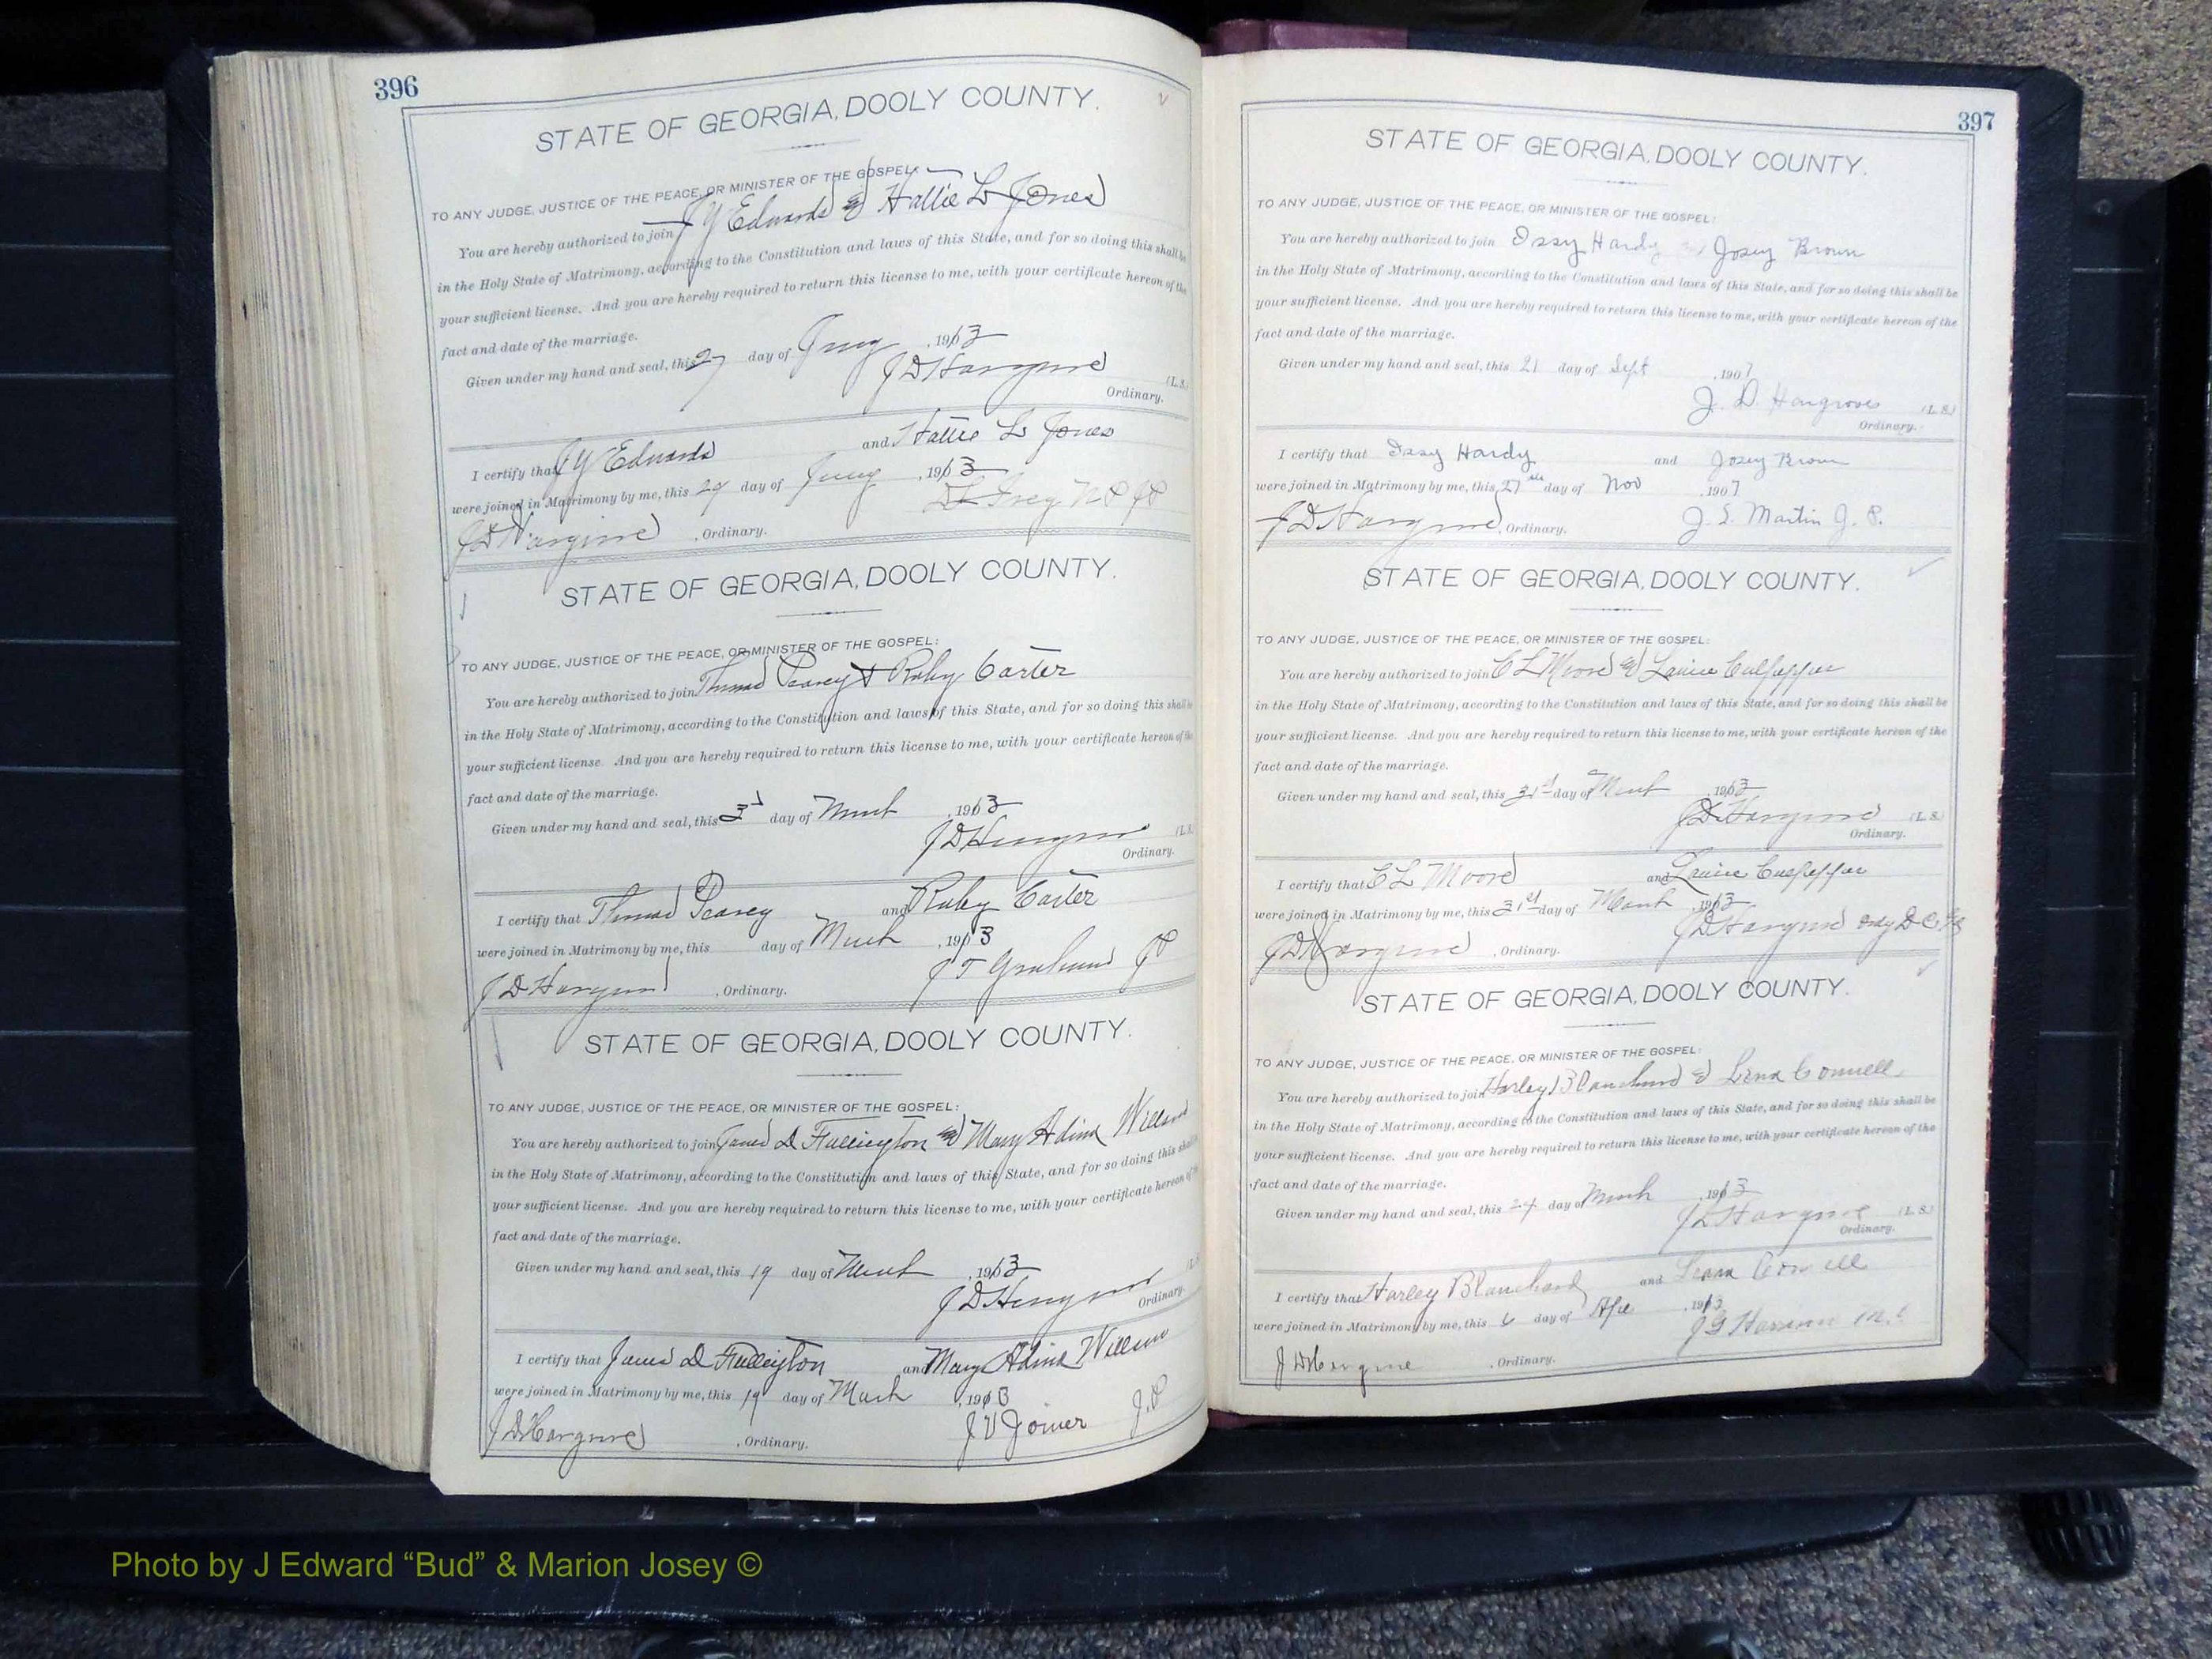 396
STATE OF GEORGIA, DOOLY COUNTY.
TO ANY JUDGE, JUSTICE OF THE PEACE, OR MINISTER OF THE GOSPEL:
You are hereby authorized to join J Y Edwards & Hattie L Jones
in the Holy State of Matrimony, according to the Constitution and laws of this State, and for so doing this shall be
your sufficient license. And you are hereby required to return this license to me, with your certificate hereon of the
fact and date of the marriage.
Given under my hand and seal, this 27 day of , 1913
J D Hargrove (L.S.)
Ordinary.
I certify that J Y Edwards and Hattie L Jones
were joined in Matrimony by me, this 29 day of , 1913
J D Hargrove , Ordinary.
STATE OF GEORGIA, DOOLY COUNTY.
TO ANY JUDGE, JUSTICE OF THE PEACE, OR MINISTER OF THE GOSPEL:
You are hereby authorized to join Thomas Pearey & Ruby Carter
in the Holy State of Matrimony, according to the Constitution and laws of this State, and for so doing this shall be
your sufficient license. And you are hereby required to return this license to me, with your certificate hereon of the
fact and date of the marriage.
Given under my hand and seal, this 3 day of March , 1913
J D Hargrove (L.S.)
Ordinary.
I certify that Thomas Pearey and Ruby Carter
were joined in Matrimony by me, this day of March , 1913
J D Hargrove , Ordinary. J T Graham J P
STATE OF GEORGIA, DOOLY COUNTY.
TO ANY JUDGE, JUSTICE OF THE PEACE, OR MINISTER OF THE GOSPEL:
You are hereby authorized to join James D Fullington & Mary Adina
in the Holy State of Matrimony, according to the Constitution and laws of this State, and for so doing this shall
your sufficient license. And you are hereby required to return this license to me, with your certificate hereon of the
fact and date of the marriage.
Given under my hand and seal, this 19 day of March , 1913
J D Hargrove (L.S.
Ordinary.
I certify that James D Fullington and Mary Adina
were joined in Matrimony by me, this 19 day of March , 1913
J D Hargrove , Ordinary. J V Joiner J.P
397
STATE OF GEORGIA, DOOLY COUNTY.
TO ANY JUDGE, JUSTICE OF THE PEACE, OR MINISTER OF THE GOSPEL:
You are hereby authorized to join Issy Hardy Josey Brown
in the Holy State of Matrimony, according to the Constitution and laws of this State, and for so doing this shall be
your sufficient license. And you are hereby required to return this license to me, with your certificate hereon of the
fact and date of the marriage.
Given under my hand and seal, this 21 day of Sept , 1907
J. D. Hargrove (L.S.)
Ordinary.
I certify that Issy Hardy and Josey Brown
were joined in Matrimony by me, this 27th day of Nov , 1907
J D Hargrove , Ordinary. J. S. Martin J. P.
STATE OF GEORGIA, DOOLY COUNTY.
TO ANY JUDGE, JUSTICE OF THE PEACE, OR MINISTER OF THE GOSPEL:
You are hereby authorized to join C L Moore & Culpepper
in the Holy State of Matrimony, according to the Constitution and laws of this State, and for so doing this shall be
your sufficient license. And you are hereby required to return this license to me, with your certificate hereon of the
fact and date of the marriage.
Given under my hand and seal, this 31st day of March , 1913
J D Hargrove (L.S.)
Ordinary.
I certify that C L Moore and Culpepper
were joined in Matrimony by me, this 31st day of March , 1913
J D Hargrove Ordy D C Ga
J D Hargrove , Ordinary.
STATE OF GEORGIA, DOOLY COUNTY.
TO ANY JUDGE, JUSTICE OF THE PEACE, OR MINISTER OF THE GOSPEL:
You are hereby authorized to join Harley Blanchard & Lena Connell
in the Holy State of Matrimony, according to the Constitution and laws of this State, and for so doing this shall be
your sufficient license. And you are hereby required to return this license to me, with your certificate hereon of the
fact and date of the marriage.
Given under my hand and seal, this 24 day of March , 1913
J D Hargrove (L.S.)
Ordinary.
I certify that Harley Blanchard and Leana Connell
were joined in Matrimony by me, this 6 day of Apl , 1913
J D Hargrove , Ordinary.
Photo by J Edward “Bud” & Marion Josey ©